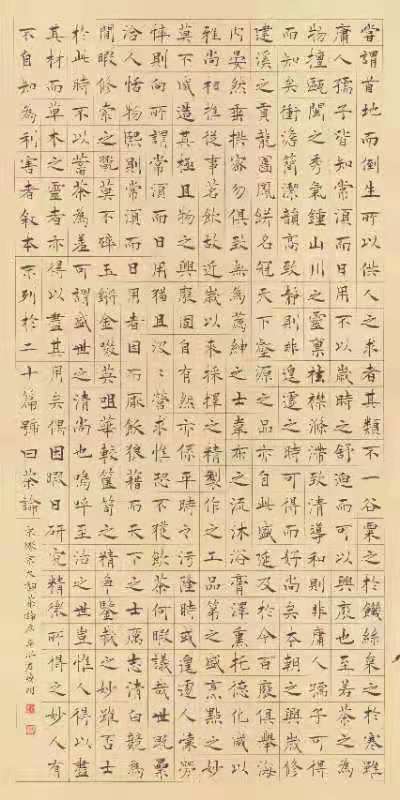 嘗謂首地而倒生所以供人之求者其類不一谷粟之於饑絲枲之於寒雖
庸人孺子皆知常湏而日用不以歲時之舒迫而可以興廢也至若茶之為
物擅甌閩之秀氣鍾山川之靈禀祛襟滌滯致清導和則非庸人孺子可得
而知矣衝澹簡潔韻高致靜則非遑遽之時可得而好尚矣本朝之興歲修
建溪之貢龍團鳳餅名冠天下壑源之品亦自此盛延及於今百廢俱舉海
内晏然垂拱密勿俱致無為薦紳之士韋布之流沐浴膏澤熏托德化咸以
雅尚相推從事茗飲故近歲以來採擇之精製作之工品第之盛烹點之妙
莫不咸造其極且物之興廢固自有然亦係乎時之污隆時或遑遽人懷勞
体則向所謂常湏而日用猶且汲〻營求惟恐不獲飲茶何暇議哉世既累
洽人恬物熙則常湏而日用者固而厭飫狼藉而天下之士厲志清白競為
閒暇修索之翫莫不碎玉鏘金啜英咀華較筐笥之精爭鑒裁之妙雖否士
於此時不以蓄茶為羞可謂盛世之清尚也嗚呼至治之世豈惟人得以盡
其材而草木之靈者亦得以盡其用矣偶因暇日研究精微所得之妙人有
不自知為利害者敘本末列於二十篇號曰茶論
宋徽宗大觀茶論序